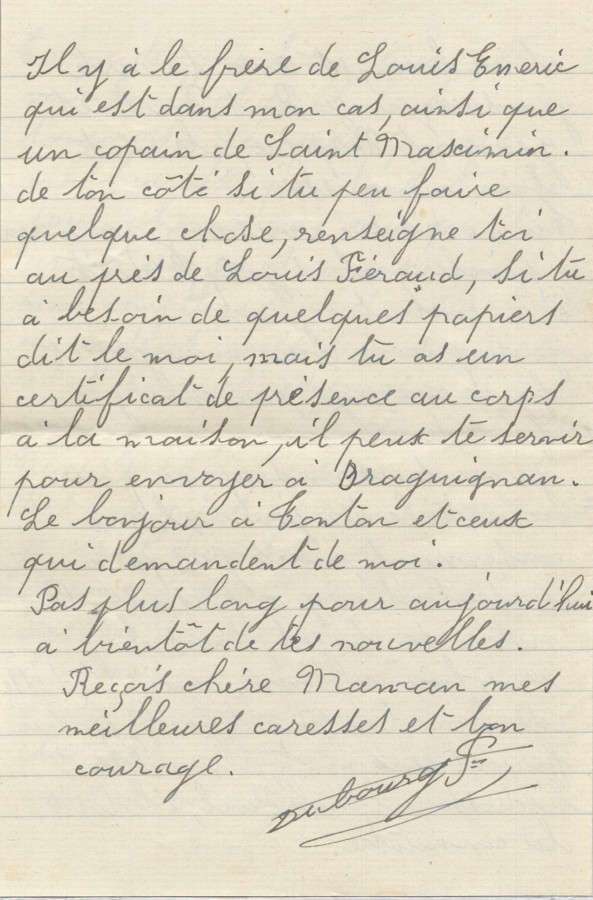 Il y à le frère de Louis Emeric
qui est dans mon cas, ainsi que
un copain de Saint Maximin.
de ton côté si tu peu faire
quelque chose, renseigne toi
au près de Louis Féraud, si tu
à besoin de quelques papiers
dit le moi, mais tu as un
certificat de présence au corps
à la maison, il peux te servir
pour envoyer à Draguignan.
Le bonjour à Tonton et ceux
qui demandent de moi.
Pas plus long pour aujourd'hui
à bientôt de tes nouvelles.
Reçois chère Maman mes
meilleures caresses et bon
courage.
Dubourg